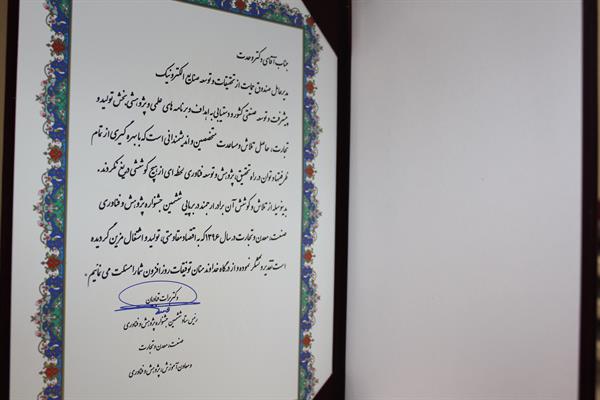 جناب آقای دکتر وحدت
مدیرعامل صندوق حمایت از تحقیقات و توسعه صنایع الکترونیک
پیشرفت و توسعه صنعتی کشور و دستیابی به اهداف و برنامه های علمی و پژوهشی بخش تولید و
تجارت، حاصل تلاش و مساعدت متخصصین و اندیشمندانی است که با بهره گیری از تمام
ظرفیتها و توان در راه تحقیق، پژوهش و توسعه فناوری لحظه ای از هیچ کوششی دریغ نکردند.
بدینوسیله از تلاش و کوشش آن برادر ارجمند در برپایی ششمین جشنواره پژوهش و فناوری
صنعت، معدن و تجارت در سال ۱۳۹۶ که به اقتصاد مقاومتی، تولید و اشتغال مزین گردیده
است تقدیر و تشکر نموده و از درگاه خداوند منان توفیقات روزافزون شما را مسئلت می نمائیم.
دکتر برات قنبری
رئیس ستاد ششمین جشنواره پژوهش و فناوری
صنعت، معدن و تجارت
و معاون آموزش، پژوهش و فناوری